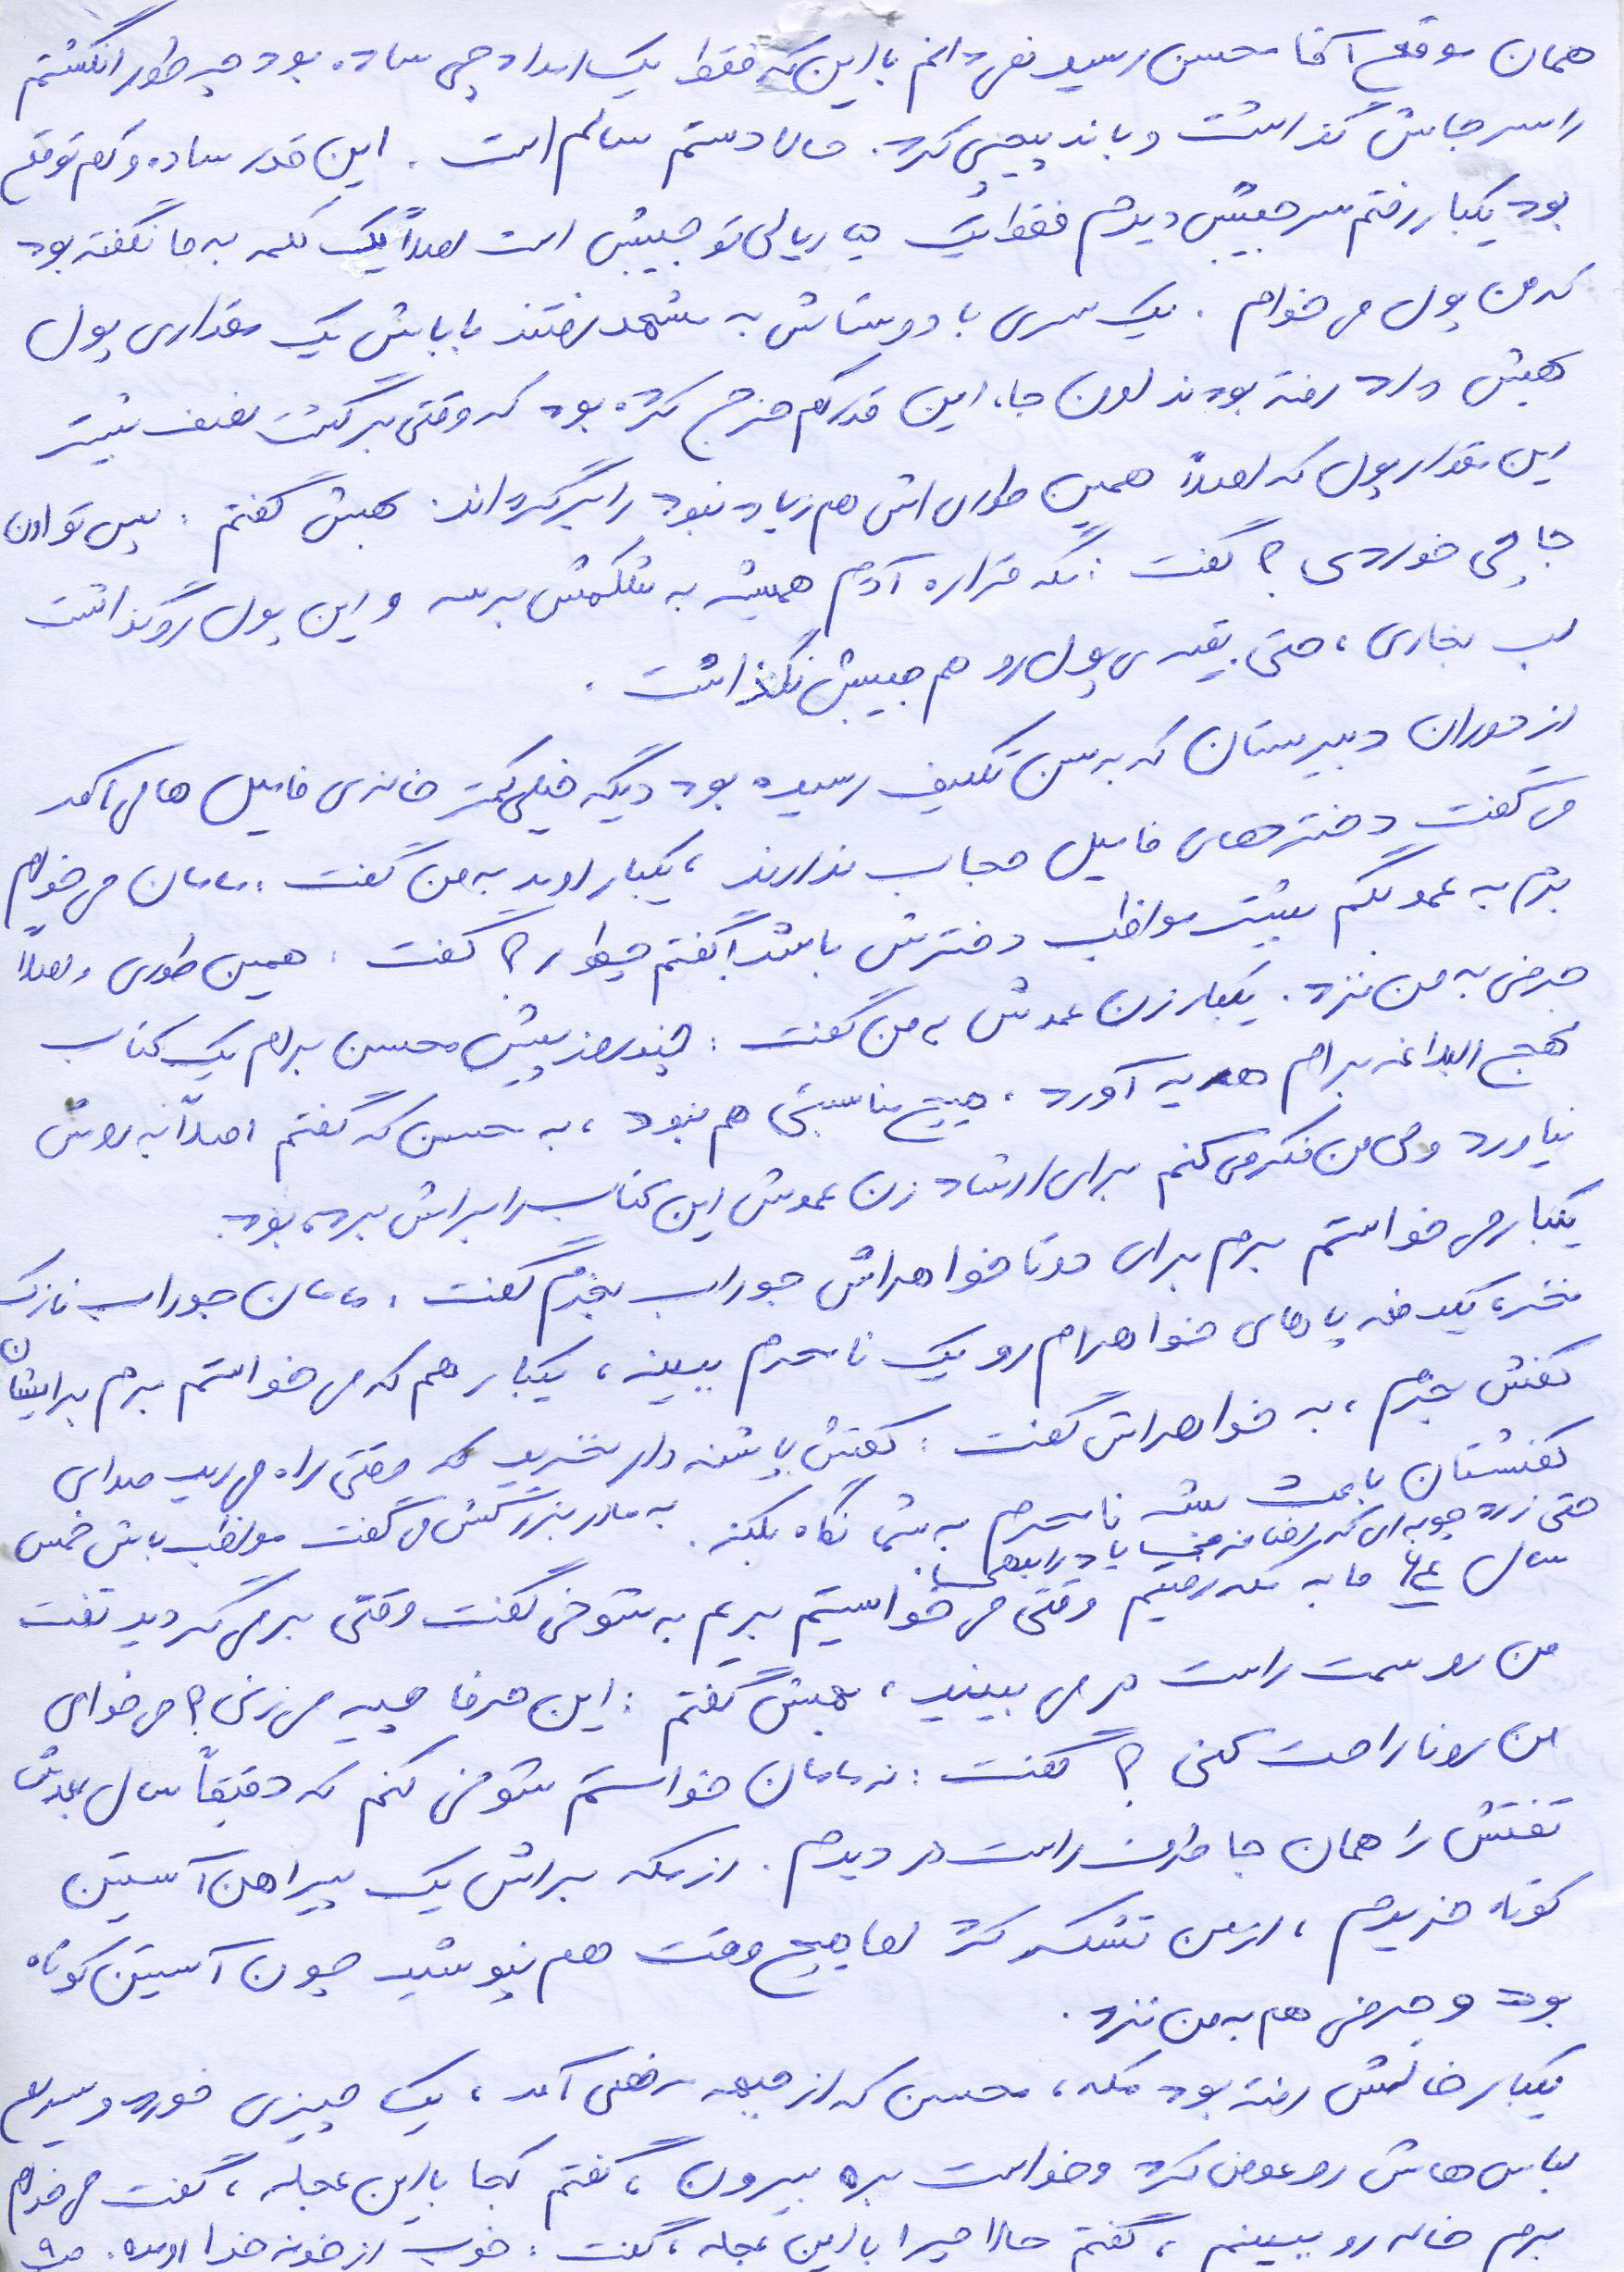 همان موقع آقا محسن رسید نمی دانم با این که فقط یک امدادچی ساده بود چه طور انگشتم
را سر جاش گذاشت و باند پیچی کرد. حالا دستم سالم است. این قدر ساده و کم توقع
بود یکبار رفتم سر جیبش دیدم فقط یک ریالی تو جیبش است اصلاً یک کلمه به ما نگفته بود
که من پول می خوام. یک سری با دوستاش به مشهد رفتند باباش یک مقداری پول
بهش داد رفته بودند اون جا، این قدر کم خرج کرده بود که وقتی برگشت نصف بیشتر
این مقدار پول که اصلاً همین طوری اش هم زیاد نبود را برگرداند. بهش گفتم: پس تو اون
جا چی خوردی؟ گفت: مگه قراره آدم همیشه به شکمش برسه و این پول رو گذاشت
لب بخاری، حتی بقیه ی پول رو هم جیبش نگذاشت.
از دوران دبیرستان که به سن تکلیف رسیده بود دیگه خیلی کمتر خانه ی فامیل ها می آمد
می گفت دخترهای فامیل حجاب ندارند، یکبار اومد به من گفت: مامان می خوام
برم به عمو بگم بیشتر مواظب دخترش باشد گفتم چطور؟ گفت: همین طوری و اصلاً
حرفی به من نزد. یکبار زن عموش به من گفت: چند روز پیش محسن برام یک کتاب
نهج البلاغه برام هدیه آورد، هیچ مناسبتی هم نبود، به محسن که گفتم اصلاً به روش
نیاورد ولی من فکر می کنم برای ارشاد زن عموش این کتاب را براش برده بود.
یکبار می خواستم برم برای دوتا خواهراش جوراب بخرم گفت: مامان جوراب نازک
نخر، یک دفعه پاهای خواهرام رو یک نامحرم ببینه، یکبار هم که می خواستم برم برایشان
کفش بخرم، به خواهراش گفت: کفش پاشنه دار نخرید که وقتی راه می رید صدای
کفشتان باعث بشه نامحرم به شما نگاه بکنه. به مادر بزرگش می گفت مواظب باش خمس
حتی زردچوبه ای که اضافه میاد را بدهی.
سال ۶۴ ما به مکه رفتیم وقتی می خواستیم بریم به شوخی گفت وقتی برمی گردید تخت
من رو سمت راست در می بینید، بهش گفتم: این حرفا چیه می زنی؟ می خوای
من رو ناراحت کنی؟ گفت: نه مامان خواستم شوخی کنم که دقیقاً سال بعدش
تختش را همان جا طرف راست در دیدم. از مکه براش یک پیراهن آستین
کوتاه خریدم، از من تشکر کرد اما هیچ وقت هم نپوشید چون آستین کوتاه
بود و حرفی هم به من نزد.
یکبار خالش رفته بود مکه، محسن که از جبهه مرخصی آمد، یک چیزی خورد و سریع
لباس هاش رو عوض کرد و خواست بره بیرون، گفتم کجا با این عجله، گفت می خوام
برم خاله رو ببینم، گفتم حالا چرا با این عجله، گفت: خوب از خونه خدا اومده. ص۹